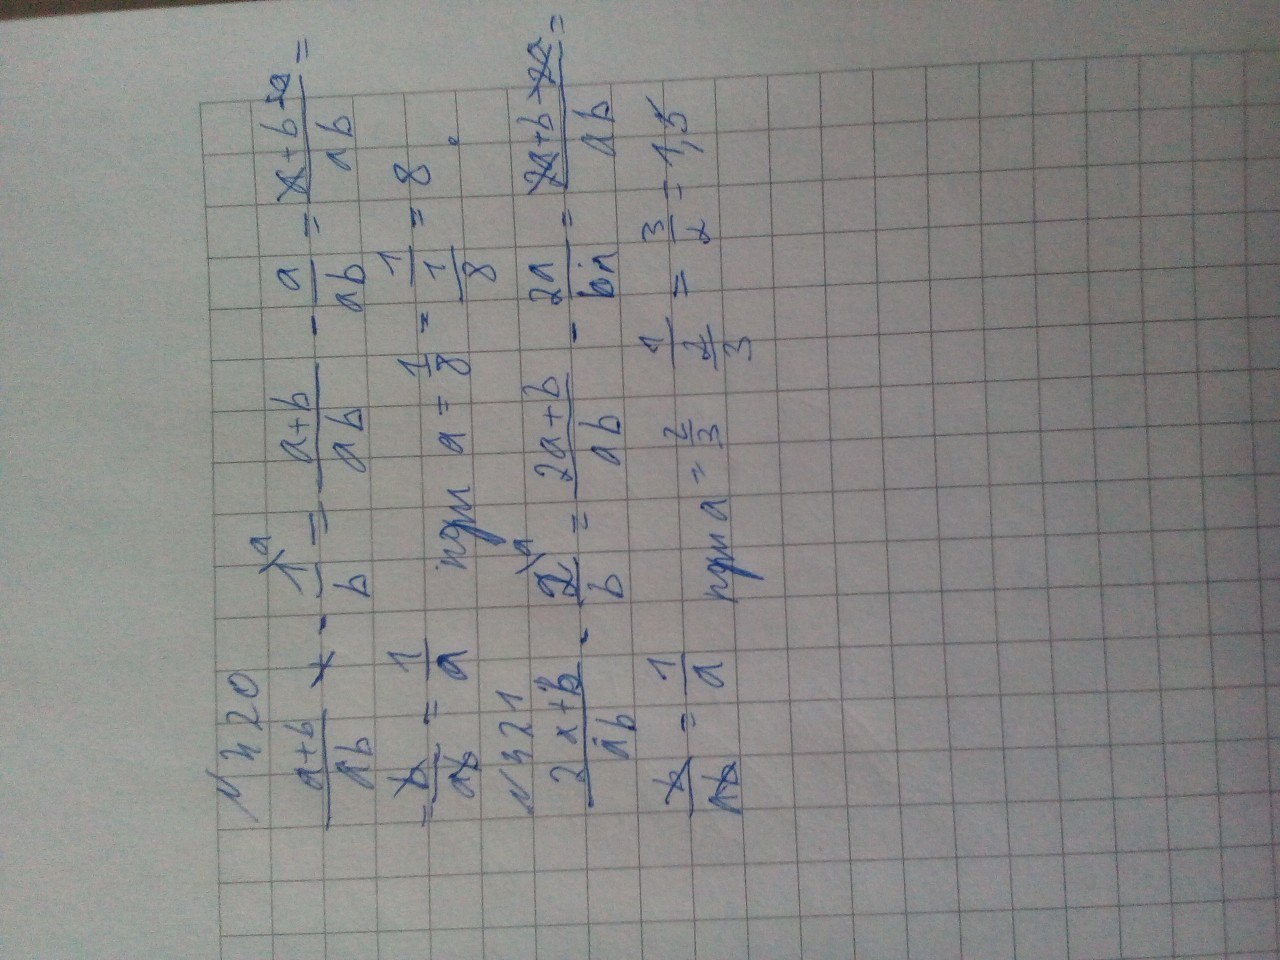 N 420
a+b/ab - 1/b \a = a+b/ab - a/ab = a+b-a/ab =
= b/ab = 1/a при a = 1/8 = 1/(1/8) = 8 .
N 421
2a+b/ab - 2/b \a = 2a+b/ab - 2a/ba = 2a+b-2a/ab =
b/ab = 1/a при a = 2/3 1/(2/3) = 3/2 = 1,5